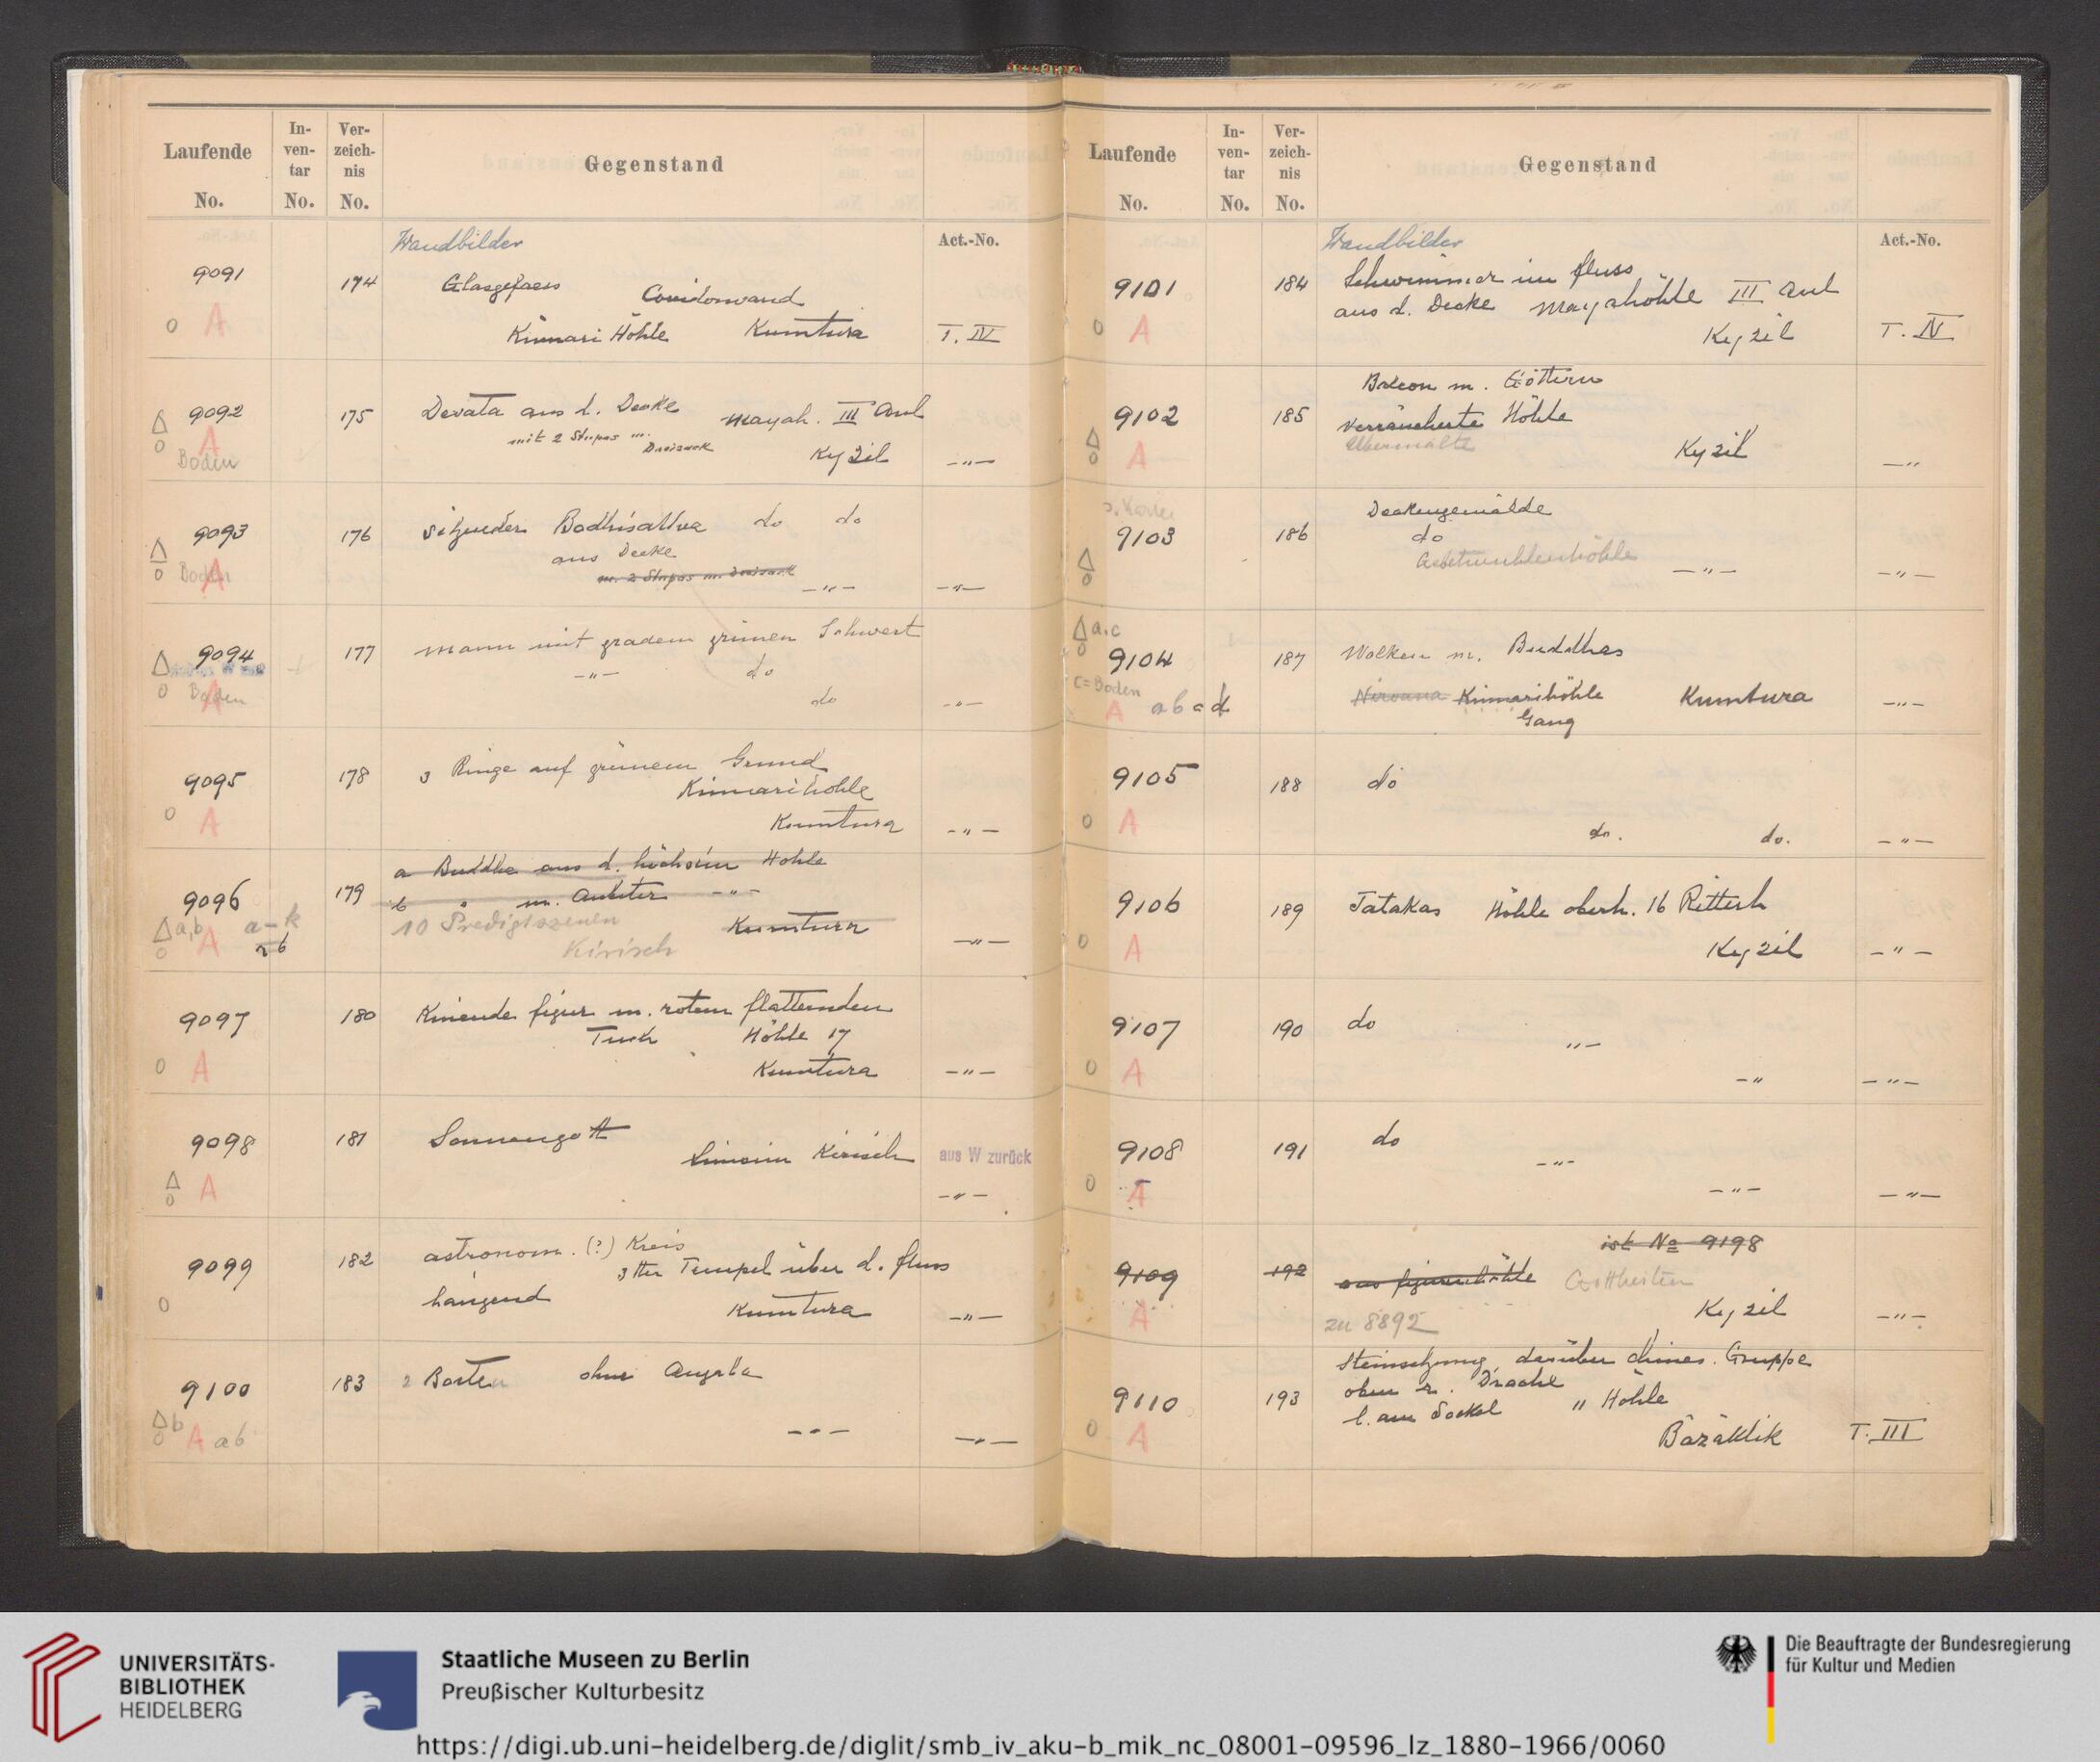 Laufende No.
In-ventar No.
Ver-zeich-nis No.
Gegenstand
Wandbilder
Act.-No.
9091
174
Glasgefaess
Kinnari Höhle Kumtura
T. IV
O A
9092
175
Devata aus d. Decke Mayah. III Anl
mit 2 Stupas m.
Kyzil
—"—
Δ O A
Boden
9093
176
sitzender Bodhisattva do do
aus Decke
m. 2 Stupas m.
—"— —"—
Δ O Boden A
9094
177
Mann mit gradem grünen Schwert
—"— do
do —"—
Δ O Boden A
9095
178
3 Ringe auf grünem Grund
Kinnarihöhle
Kumtura —"—
O A
9096
179
a Buddha aus d. Höhle
b " m. Anbeter —"—
10 Predigtszenen
Kumtura
Kirisch
—"—
Δ a,b O A a-k
ab
9097
180
Knieende Figur m. rotem flatternden
Tuch Höhle 17
Kumtura —"—
O A
9098
181
Sonnengott
Simsim Kirisch
aus W zurück
—"—
Δ O A
9099
182
astronom. (?) Kreis
3tter Tempel über d. Fluss
hängend
Kumtura —"—
O
9100
183
2 Borten ohne Angabe
—"— —"—
Δ b O A ab
Laufende No.
In-ventar No.
Ver-zeich-nis No.
Gegenstand
Wandbilder
Act.-No.
9101
184
Schwimmer im Fluss
aus d. Decke Mayahöhle III Anl
Kyzil
T. IV
O A
9102
185
Balcon m. Göttern
verräucherte Höhle
Übermalte
Kyzil —"
Δ O A
9103
186
Deckengemälde
do
—"— —"—
Δ O
Δ a.c O
9104
187
Wolken m. Buddhas
Nirvana Kinnarihöhle Kumtura
Gang
—"—
c = Boden
A a b c d
9105
188
do
do. do. —"—
O A
9106
189
Jatakas Höhle oberh. 16 Ritterh
Kyzil —"—
O A
9107
190
do
"—
—" —"—
O A
9108
191
do
—"—
—"— —"—
O A
ist No 9198
9109
192
aus Figurenhöhle Gottheiten
Kyzil —"—
zu 8892
A
9110
193
Steinsetzung, darüber chines. Gruppe
oben r. Drache
l. am Sockel " Höhle
Bäzäklik
T. III
O A
UNIVERSITÄTS-
BIBLIOTHEK
HEIDELBERG
Staatliche Museen zu Berlin
Preußischer Kulturbesitz
Die Beauftragte der Bundesregierung
für Kultur und Medien
https://digi.ub.uni-heidelberg.de/diglit/smb_iv_aku-b_mik_nc_08001-09596_lz_1880-1966/0060